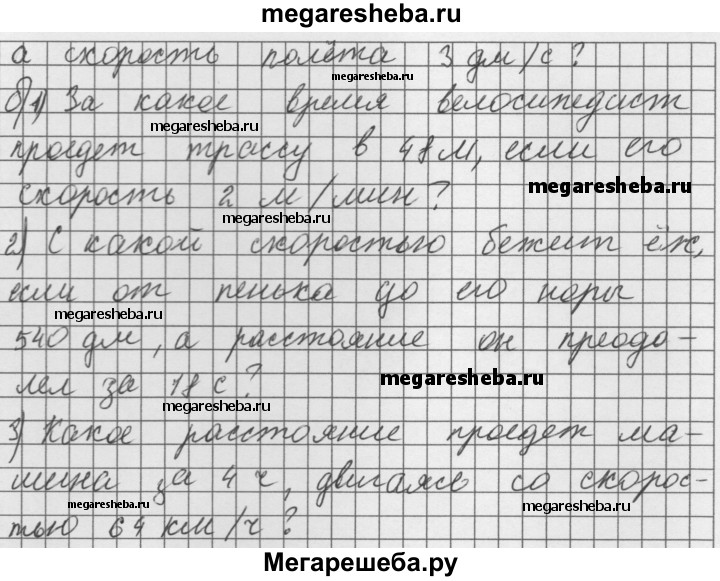 megaresheba.ru
а скорость полёта 3 дм/с?
megaresheba.ru
б) 1) За какое время велосипедист
megaresheba.ru
проедет трассу в 48 м, если его
megaresheba.ru
скорость 2 м/мин?
megaresheba.ru
2) С какой скоростью бежит ёж,
если от пенька до его норы
megaresheba.ru
540 дм, а расстояние он преодо-
megaresheba.ru
лел за 18 с?
megaresheba.ru
3) Какое расстояние проедет ма-
шина за 4 ч, двигаясь со скорос-
megaresheba.ru
megaresheba.ru
тью 64 км/ч?
Мегарешеба.ру